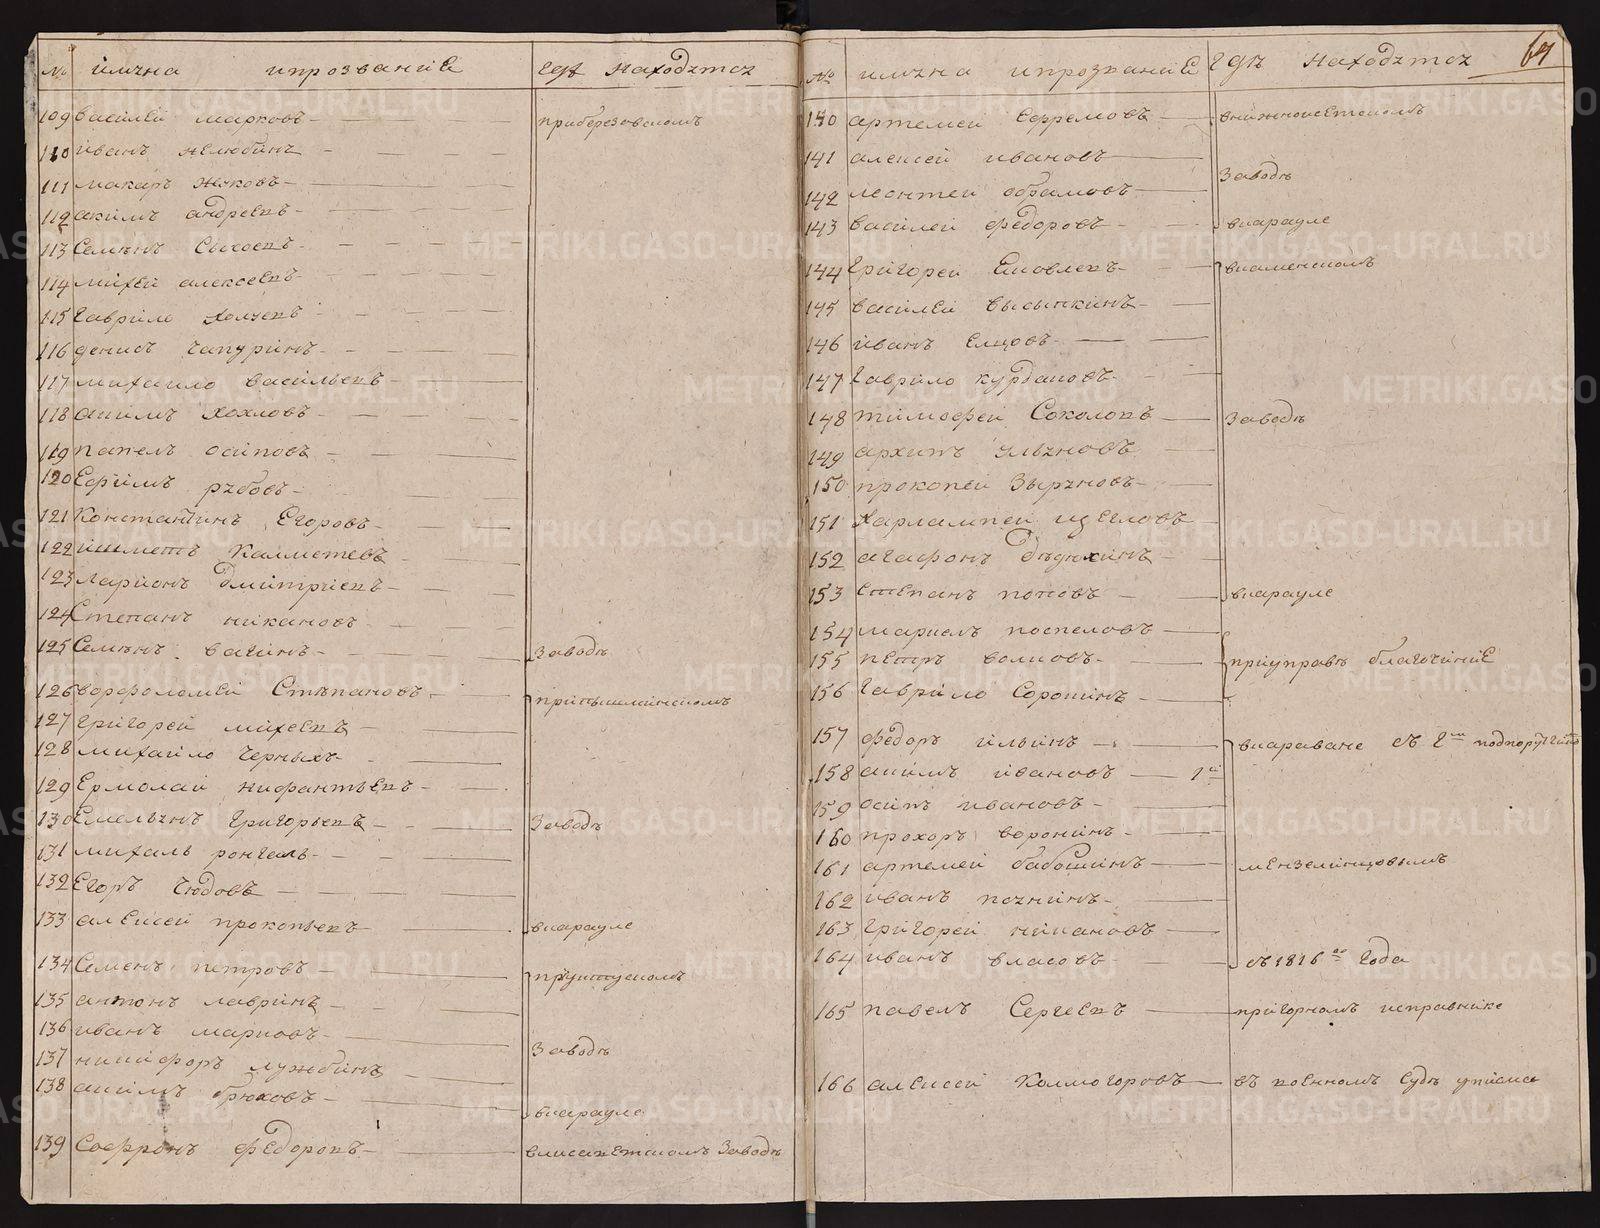 № имяна ипрозвание где находятся
109 василей марковъ
прибере́зовскомъ
110 иванъ нелюбинъ
111 макаръ жуковъ
112 акимъ андреевъ
113 Семенъ Сысоевъ
114 михей алексеевъ
115 Гаврило
116 денисъ Чапуринъ
117 михаило васильевъ
118 акимъ хохловъ
119 павелъ осиповъ
120 Ефимъ рябовъ
121 Константинъ Егоровъ
122 ишметъ Калметевъ
123 ларионъ дмитриевъ
124 Степанъ никановъ
125 Семенъ вагинъ
Заводе
126 ворфоломей Степановъ
припышминскомъ
127 григорей михеевъ
128 михаило Черныхъ
129 Ермолай нифантьевъ
130 Емельянъ григорьевъ
Заводе
131 михаль
132 Егоръ Чюдовъ
133 алексей прокопьевъ
вкарауле
134 Семенъ петровъ
135 антонъ лавринъ
136 иванъ марковъ
137 никифоръ лужбинъ
Заводе
138 акимъ брюховъ
вкарауле
139 Софронъ федоровъ
влисаветскомъ Заводе
№ имяна ипрозвание где находятся 67
140 артемей Ефремовъ
внижнеисетскомъ
141 алексей ивановъ
Заводе
142 леонтей обрамовъ
143 василей федоровъ
вкарауле
144 григорей Яковлевъ
вкаменскомъ
145 василей высыпкинъ
146 иванъ Елцовъ
147 Гаврило курдаковъ
148 тимофей Соколовъ
Заводе
149 архипъ ульяновъ
150 прокопей Зыряновъ
151 харлампей щегловъ
152 агафонъ бедюхинъ
153 Степанъ поповъ
вкарауле
154 маркелъ поспеловъ
155 петръ волковъ
приуправе благочиние
156 Гаврило Сорокинъ
157 федоръ ильинъ
вкараване съ
158 акимъ ивановъ 1й
159 осипъ ивановъ
160 прохоръ воронинъ
161 артемей бабошинъ
мензелинцовымъ
162 иванъ почкинъ
163 григорей никановъ
164 иванъ власовъ
съ 1816го года
165 павелъ Сергеевъ
пригорномъ исправнике
166 алексей Колмогоровъ
въ военномъ Суде